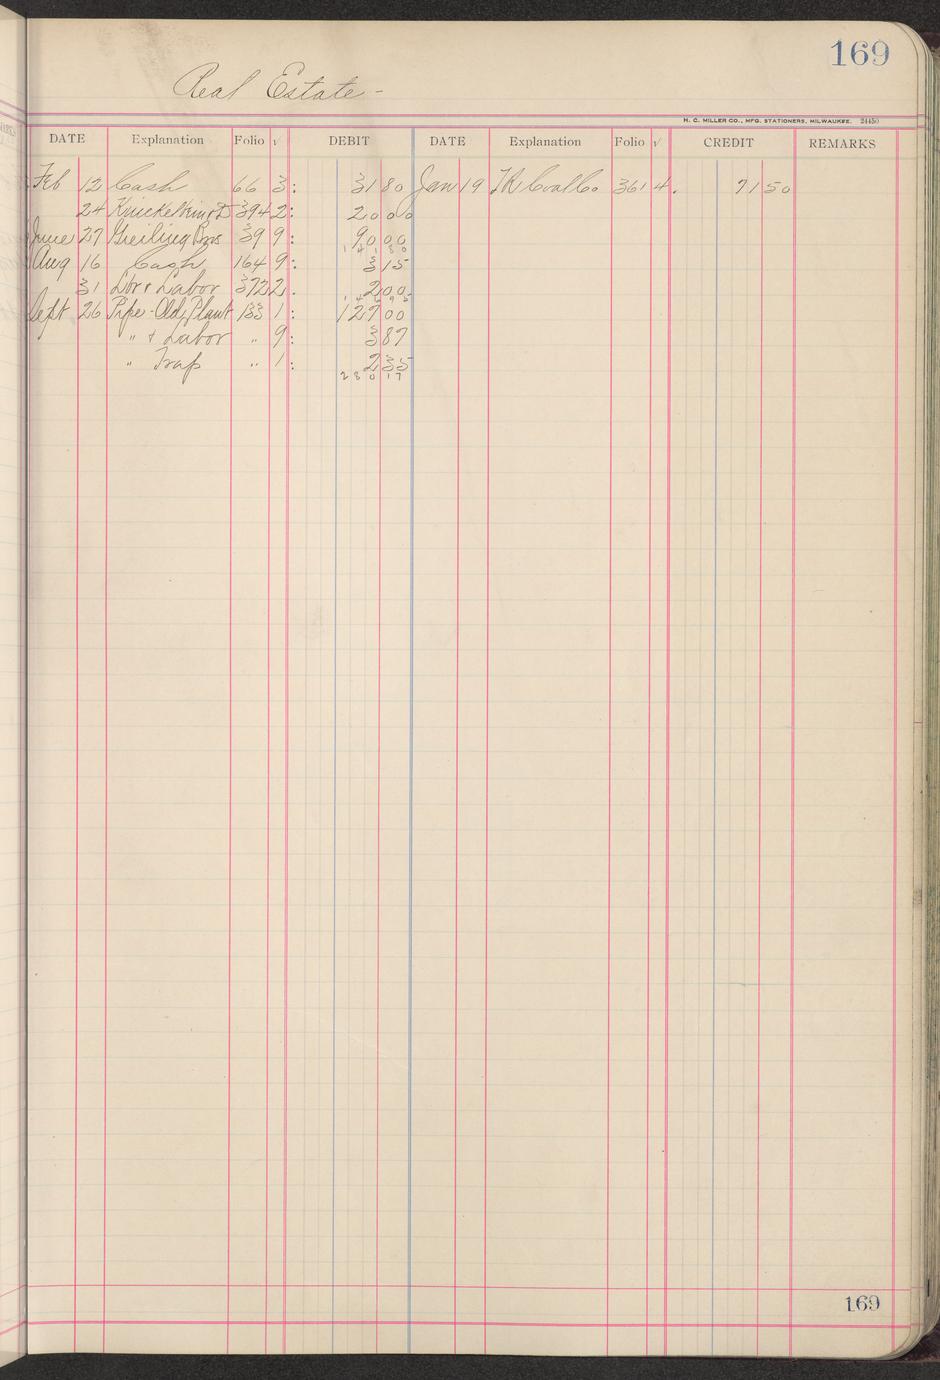 169
Real Estate -
H. C. MILLER CO., MFG. STATIONERS, MILWAUKEE. 24450
DATE Explanation Folio √ DEBIT DATE Explanation Folio √ CREDIT REMARKS
Feb 12 Cash 66 3: 31 80 Jan 19 Coal Co 361 4. 71 50
24 394 2: 20 00
June 27 Greiling Bros 39 9: 90 00
1 4 1 8 0
Aug 16 Cash 164 9: 3 15
31 Lbr & Labor 372 2. 2 00
1 4 6 9 5
Sept 26 Pipe - Old Plant 133 1: 127 00
" & Labor " 9: 3 87
" Trap " 1: 2 35
2 8 0 1 7
169